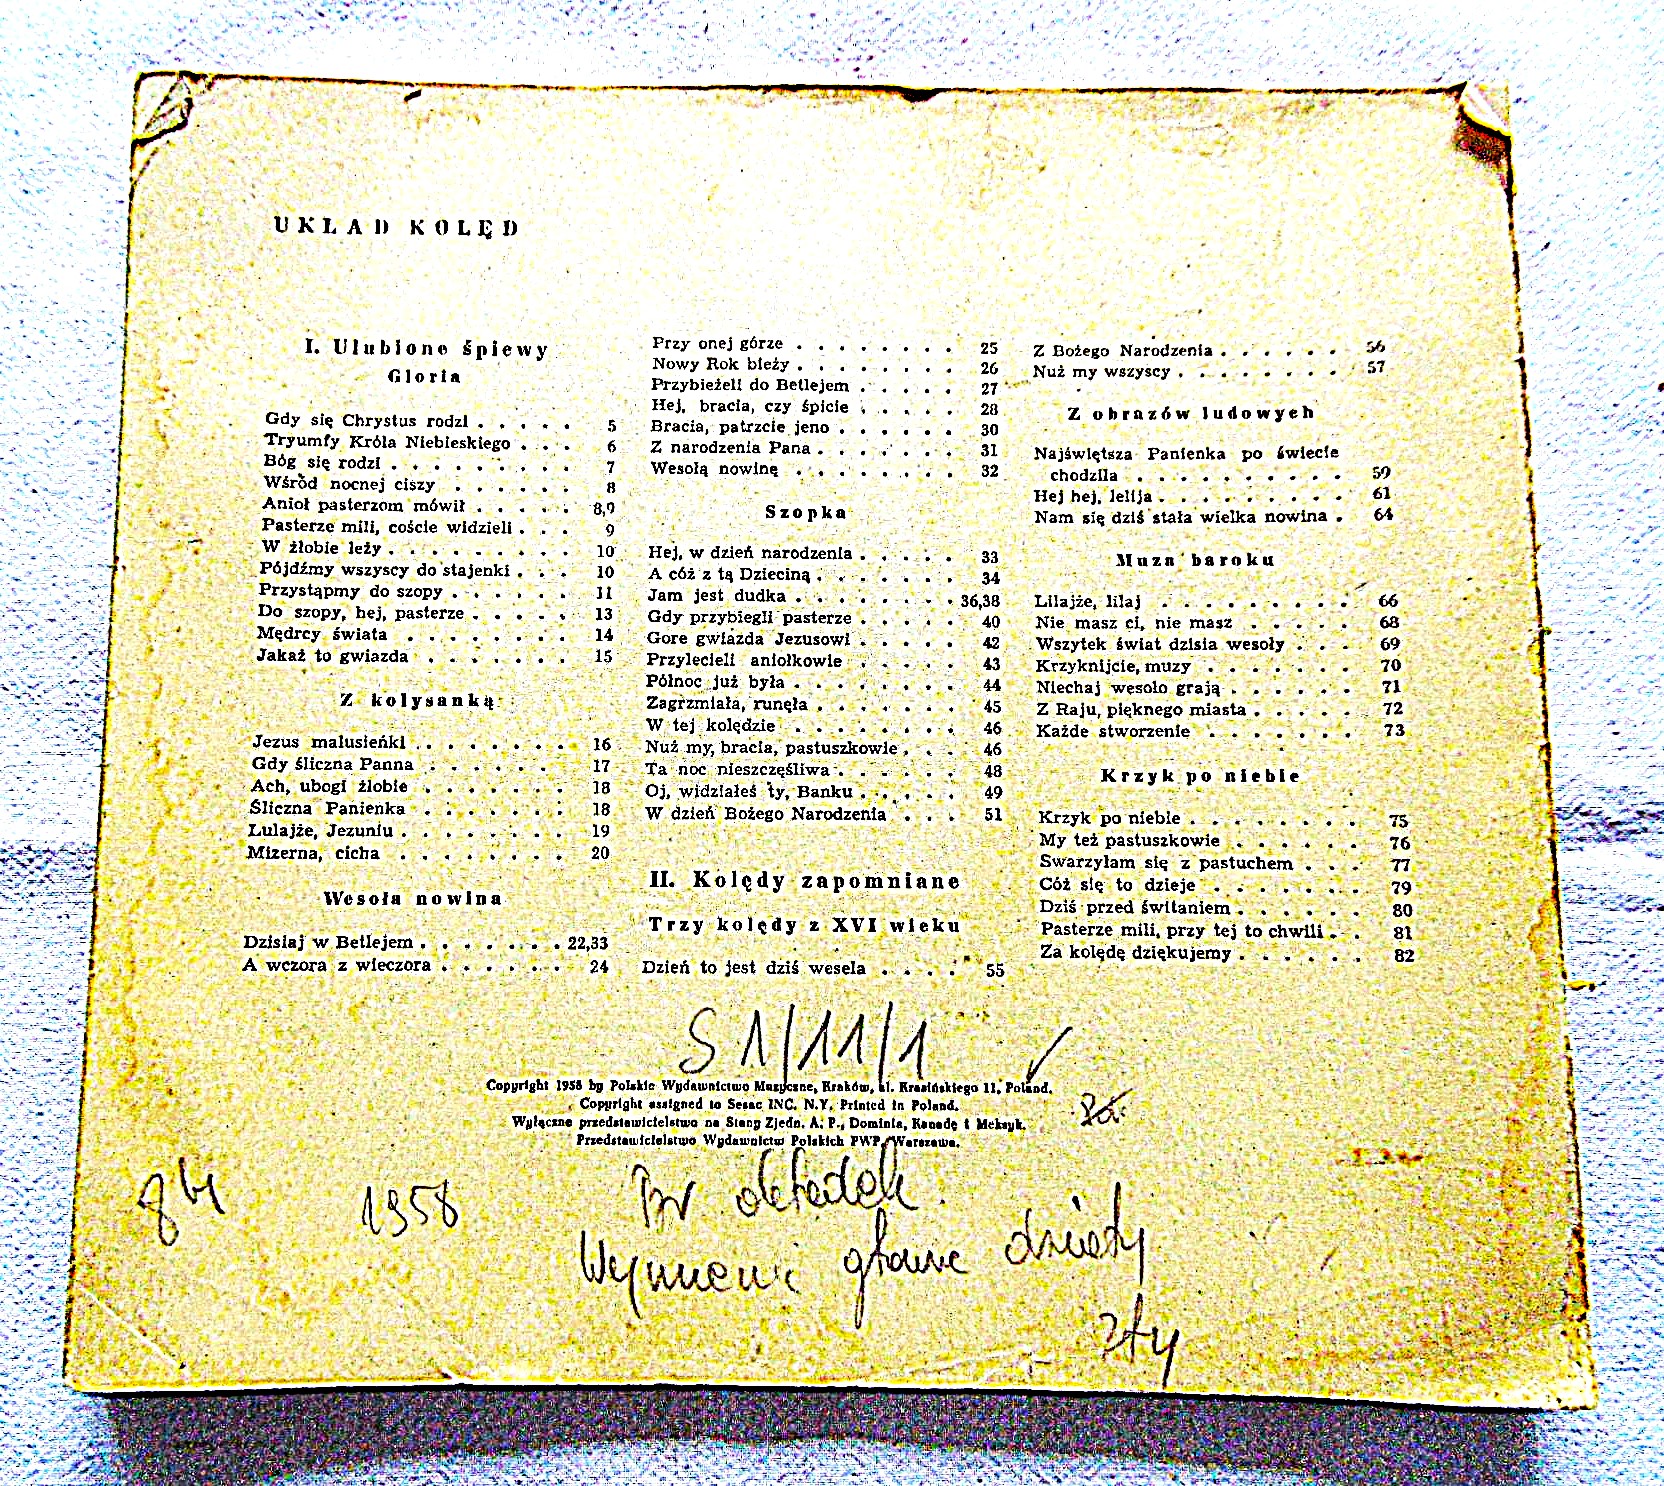 UKŁAD KOLĘD
I. Ulubione śpiewy
Gloria
Gdy się Chrystus rodzi . . . . . 5
Tryumfy Króla Niebieskiego . . . 6
Bóg się rodzi . . . . . . . . . 7
Wśród nocnej ciszy . . . . . . 8
Anioł pasterzom mówił . . . . . 8,9
Pasterze mili, coście widzieli . . . 9
W żłobie leży . . . . . . . . . 10
Pójdźmy wszyscy do stajenki . . . 10
Przystąpmy do szopy . . . . . . 11
Do szopy, hej, pasterze . . . . . 13
Mędrcy świata . . . . . . . . 14
Jakaż to gwiazda . . . . . . . 15
Z kolysanką
Jezus malusieńki . . . . . . . . 16
Gdy śliczna Panna . . . . . . 17
Ach, ubogi żłobie . . . . . . . 18
Śliczna Panienka . . . . . . . 18
Lulajże, Jezuniu . . . . . . . . 19
Mizerna, cicha . . . . . . . . 20
Wesoła nowina
Dzisiaj w Betlejem . . . . . . . 22,33
A wczora z wieczora . . . . . . 24
Przy onej górze . . . . . . . . 25
Nowy Rok bieży . . . . . . . . 26
Przybieżeli do Betlejem . . . . . 27
Hej, bracia, czy śpicie . . . . . 28
Bracia, patrzcie jeno . . . . . . 30
Z narodzenia Pana . . . . . . . 31
Wesołą nowinę . . . . . . . . 32
Szopka
Hej, w dzień narodzenia . . . . . 33
A cóż z tą Dzieciną . . . . . . . 34
Jam jest dudka . . . . . . . . 36,38
Gdy przybiegli pasterze . . . . . 40
Gore gwiazda Jezusowi . . . . . 42
Przylecieli aniołkowie . . . . . 43
Północ już była . . . . . . . . 44
Zagrzmiała, runęła . . . . . . . 45
W tej kolędzie . . . . . . . . 46
Nuż my, bracia, pastuszkowie . . . 46
Ta noc nieszczęśliwa . . . . . . 48
Oj, widziałeś ty, Banku . . . . . 49
W dzień Bożego Narodzenia . . . 51
II. Kolędy zapomniane
Trzy kolędy z XVI wieku
Dzień to jest dziś wesela . . . . 55
Z Bożego Narodzenia . . . . . . 56
Nuż my wszyscy . . . . . . . . 57
Z obrazów ludowych
Najświętsza Panienka po świecie
chodziła . . . . . . . . . . 59
Hej hej, lelija . . . . . . . . . 61
Nam się dziś stała wielka nowina . 64
Muza baroku
Lilajże, lilaj . . . . . . . . . 66
Nie masz ci, nie masz . . . . . 68
Wszytek świat dzisia wesoły . . . 69
Krzyknijcie, muzy . . . . . . . 70
Niechaj wesoło grają . . . . . . 71
Z Raju, pięknego miasta . . . . . 72
Każde stworzenie . . . . . . . 73
Krzyk po niebie
Krzyk po niebie . . . . . . . . 75
My też pastuszkowie . . . . . . 76
Swarzyłam się z pastuchem . . . 77
Cóż się to dzieje . . . . . . . 79
Dziś przed świtaniem . . . . . . 80
Pasterze mili, przy tej to chwili . . 81
Za kolędę dziękujemy . . . . . . 82
S 1/11/1
Copyright 1958 by Polskie Wydawnictwo Muzyczne, Kraków, al. Krasińskiego 11, Poland.
Copyright assigned to Sesac INC. N.Y. Printed in Poland.
Wyłączne przedstawicielstwo na Stany Zjedn. A. P., Dominia, Kanadę i Meksyk.
Przedstawicielstwo Wydawnictw Polskich PWP, Warszawa.
1958